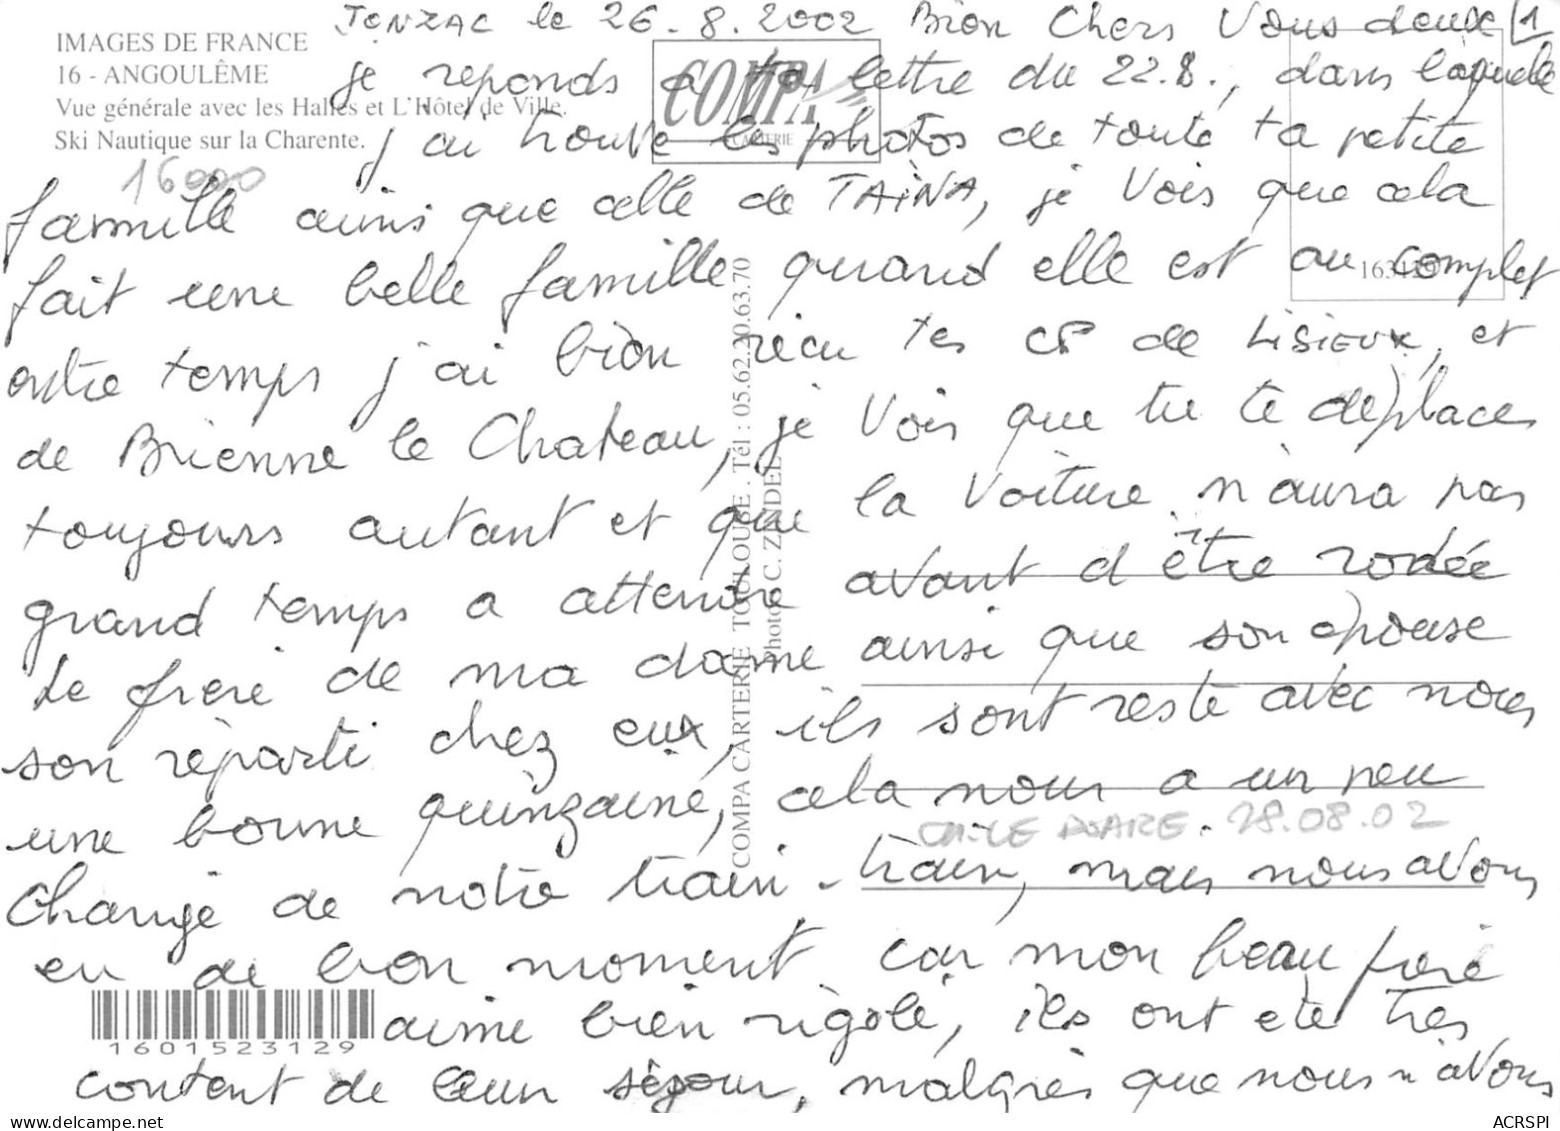 Jonzac le 26.8.2002 Bien Chers Vous deux 1
je reponds a ta lettre du 22.8., dans laquelle
j'ai trouvé les photos de toute ta petite
famille ainsi que celle de TAiNA, je vois que cela
fait une belle famille quand elle est au complet
entre temps j'ai bien reçu tes CP de LISIEUX, et
de Brienne le Chateau, je vois que tu te deplaces
toujours autant et que la voiture n'aura pas
grand temps a attendre avant d'être rodée
Le frere de ma dame ainsi que son epouse
son réparti chez eux, ils sont resté avec nous
une bonne quinzaine, cela nous a un peu
changé de notre train-train, mais nous avons
eu de bon moment car mon beau frere
aime bien rigolé, ils ont eté tres
content de leur séjour, malgrés que nous n'avons
IMAGES DE FRANCE
16 - ANGOULÊME
Vue générale avec les Halles et L'Hôtel de Ville.
Ski Nautique sur la Charente.
16000
COMPA
CARTERIE
COMPA CARTERIE TOULOUSE . Tél : 05.62.20.63.70
Photos C. ZEDEL
28.08.02
1601523129
ACRSPI